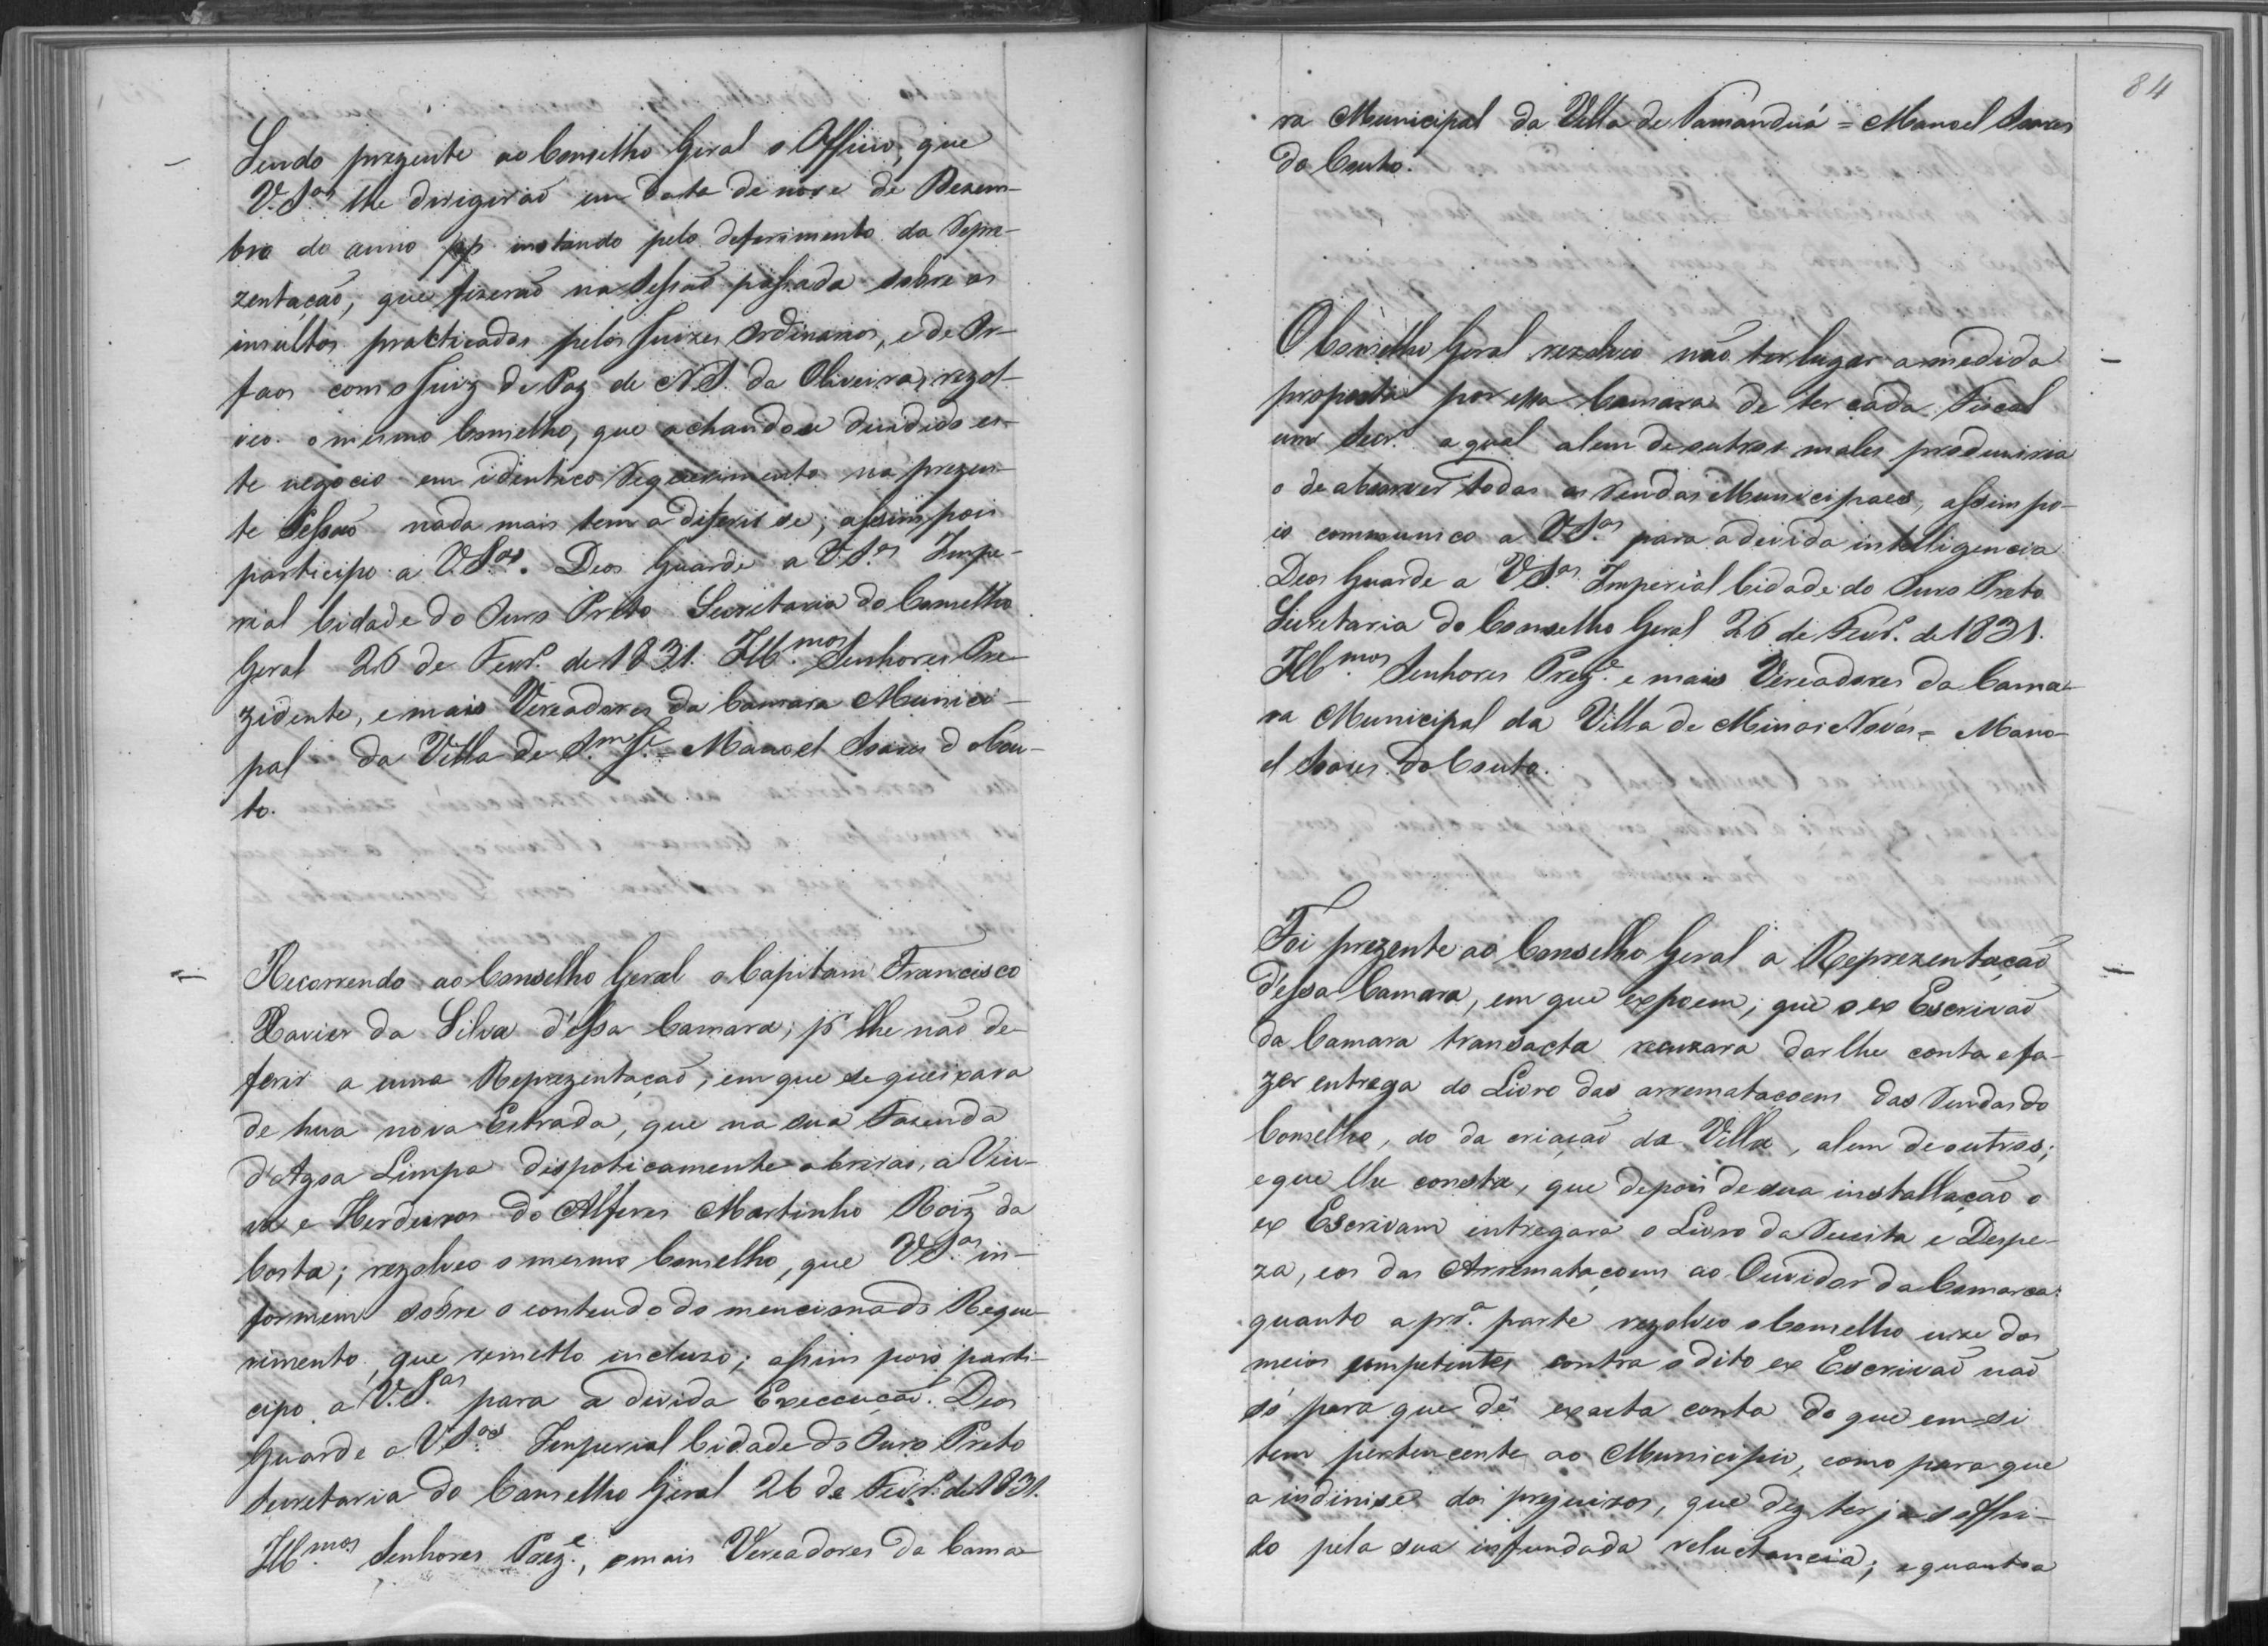 Sendo prezente ao Conselho Geral o Officio, que
V.S.as lhe dirigirão em data de nove de Dezem-
bro do anno pp. instando pelo deferimento da Repre-
zentação, que fizerão na Sessão passada sobre os
insultos practicados pelos Juizes Ordinarios, e de Or-
faos com o Juiz de Paz de N.S. da Oliveira, rezol-
veo o mesmo Conselho, que achando-se decidido es-
te negocio em identico Requerimento na prezen-
te Sessão nada mais tem a diferir se; assim pois
participo a V.S.as. Deos Guarde a V.S.as Impe-
rial Cidade do Ouro Preto Secretaria do Conselho
Geral 26 de Fevr.o de 1831. Ill.mos Senhores Pre-
zidente, e mais Vereadores da Camara Munici-
pal da Villa de = Manoel Soares do Cou-
to.
Recorrendo ao Conselho Geral o Capitam Francisco
Xavier da Silva d'essa Camara, p.r lhe não de-
ferir a uma Reprezentação, em que se queixava
de hua nova Estrada, que na sua Fazenda
d'Agoa Limpa dispoticamente abrirão, a Viu-
va e Herdeiros do Alferes Martinho Roiz da
Costa; rezolveo o mesmo Conselho, que V.S.as in-
formem sobre o contendo do mencionado Reque-
rimento, que remetto incluzo; assim pois parti-
cipo a V.S.as para a devida Execcução. Deos
Guarde a V.S.as Imperial Cidade do Ouro Preto
Secretaria do Conselho Geral 26 de Fevr.o de 1831.
Ill.mos Senhores Prez.e, e mais Vereadores da Cama-
84
ra Municipal da Villa de Tamanduá = Manoel Soares
do Couto.
O Conselho Geral rezolveo não ter lugar a medida
proposta por essa Camara de ter cada Fiscal
um Secr.o a qual alem de outros males produziria
o de absorver todas as Rendas Municipaes, assim po-
is communico a V.S.as para a devida intelligencia
Deos Guarde a V.S.as Imperial Cidade do Ouro Preto
Secretaria do Conselho Geral 26 de Fevr.o de 1831.
Ill.mos Senhores Prez.e e mais Vereadores da Cama-
ra Municipal da Villa de Minas Novas = Mano-
el Soares do Couto.
Foi prezente ao Conselho Geral a Reprezentação
d'essa Camara, em que expoem, que o ex Escrivão
da Camara transacta recuzara dar lhe conta e fa-
zer entrega do Livro das arrematacoens das Rendas do
Conselho, do da criação da Villa, alem de outros;
e que lhe consta, que depois de sua installação o
ex Escrivam intregara o Livro da Receita e Despe-
za, e os das Arrematacoens ao Ouvidor da Comarca:
quanto a pr.a parte rezolveo o Conselho uze dos
meios competentes contra o dito ex Escrivão não
só para que dê exacta conta do que em si
tem pertencente ao Municipio, como para que
a indinise dos prejuizos, que diz ter ja soffri-
do pela sua infundada reluctancia; e quanto a